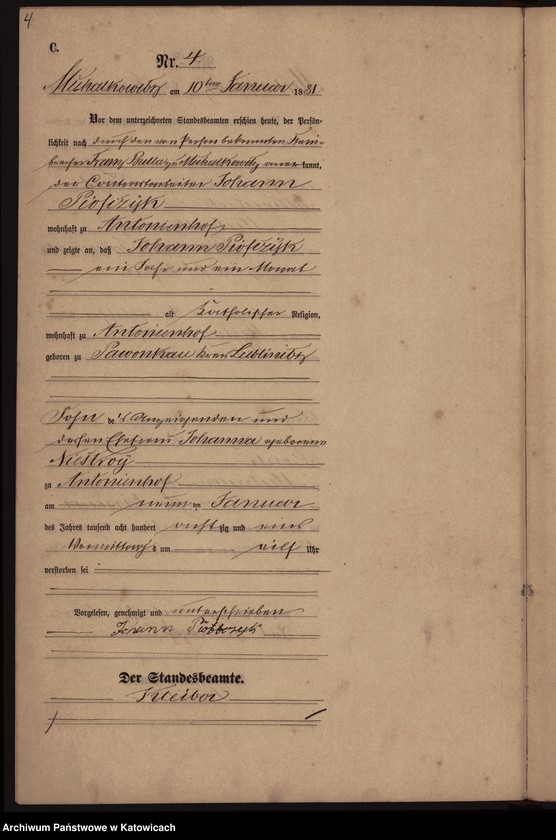 4
C.
Nr. 4
Michalkowitz am 10ten Januar 1881.
Vor dem unterzeichneten Standesbeamten erschien heute, der Persön-
lichkeit nach durch den von Person bekannten
Franz Michalkowitz kannt,
der Johann
Piosczyk
wohnhaft zu Antonienhof
und zeigte an, daß Johann Piosczyk
ein Jahr und ein Monat
alt katholischer Religion,
wohnhaft zu Antonienhof
geboren zu Pawonkau Kreis Lublinitz
Sohn des Anzeigenden und
dessen Ehefrau Johanna geborene
Niestroÿ
zu Antonienhof
am neunten Januar
des Jahres tausend acht hundert achtzig und eins
Vormittags um eilf Uhr
verstorben sei
Vorgelesen, genehmigt und unterschrieben
Johann
Der Standesbeamte.
Archiwum Państwowe w Katowicach